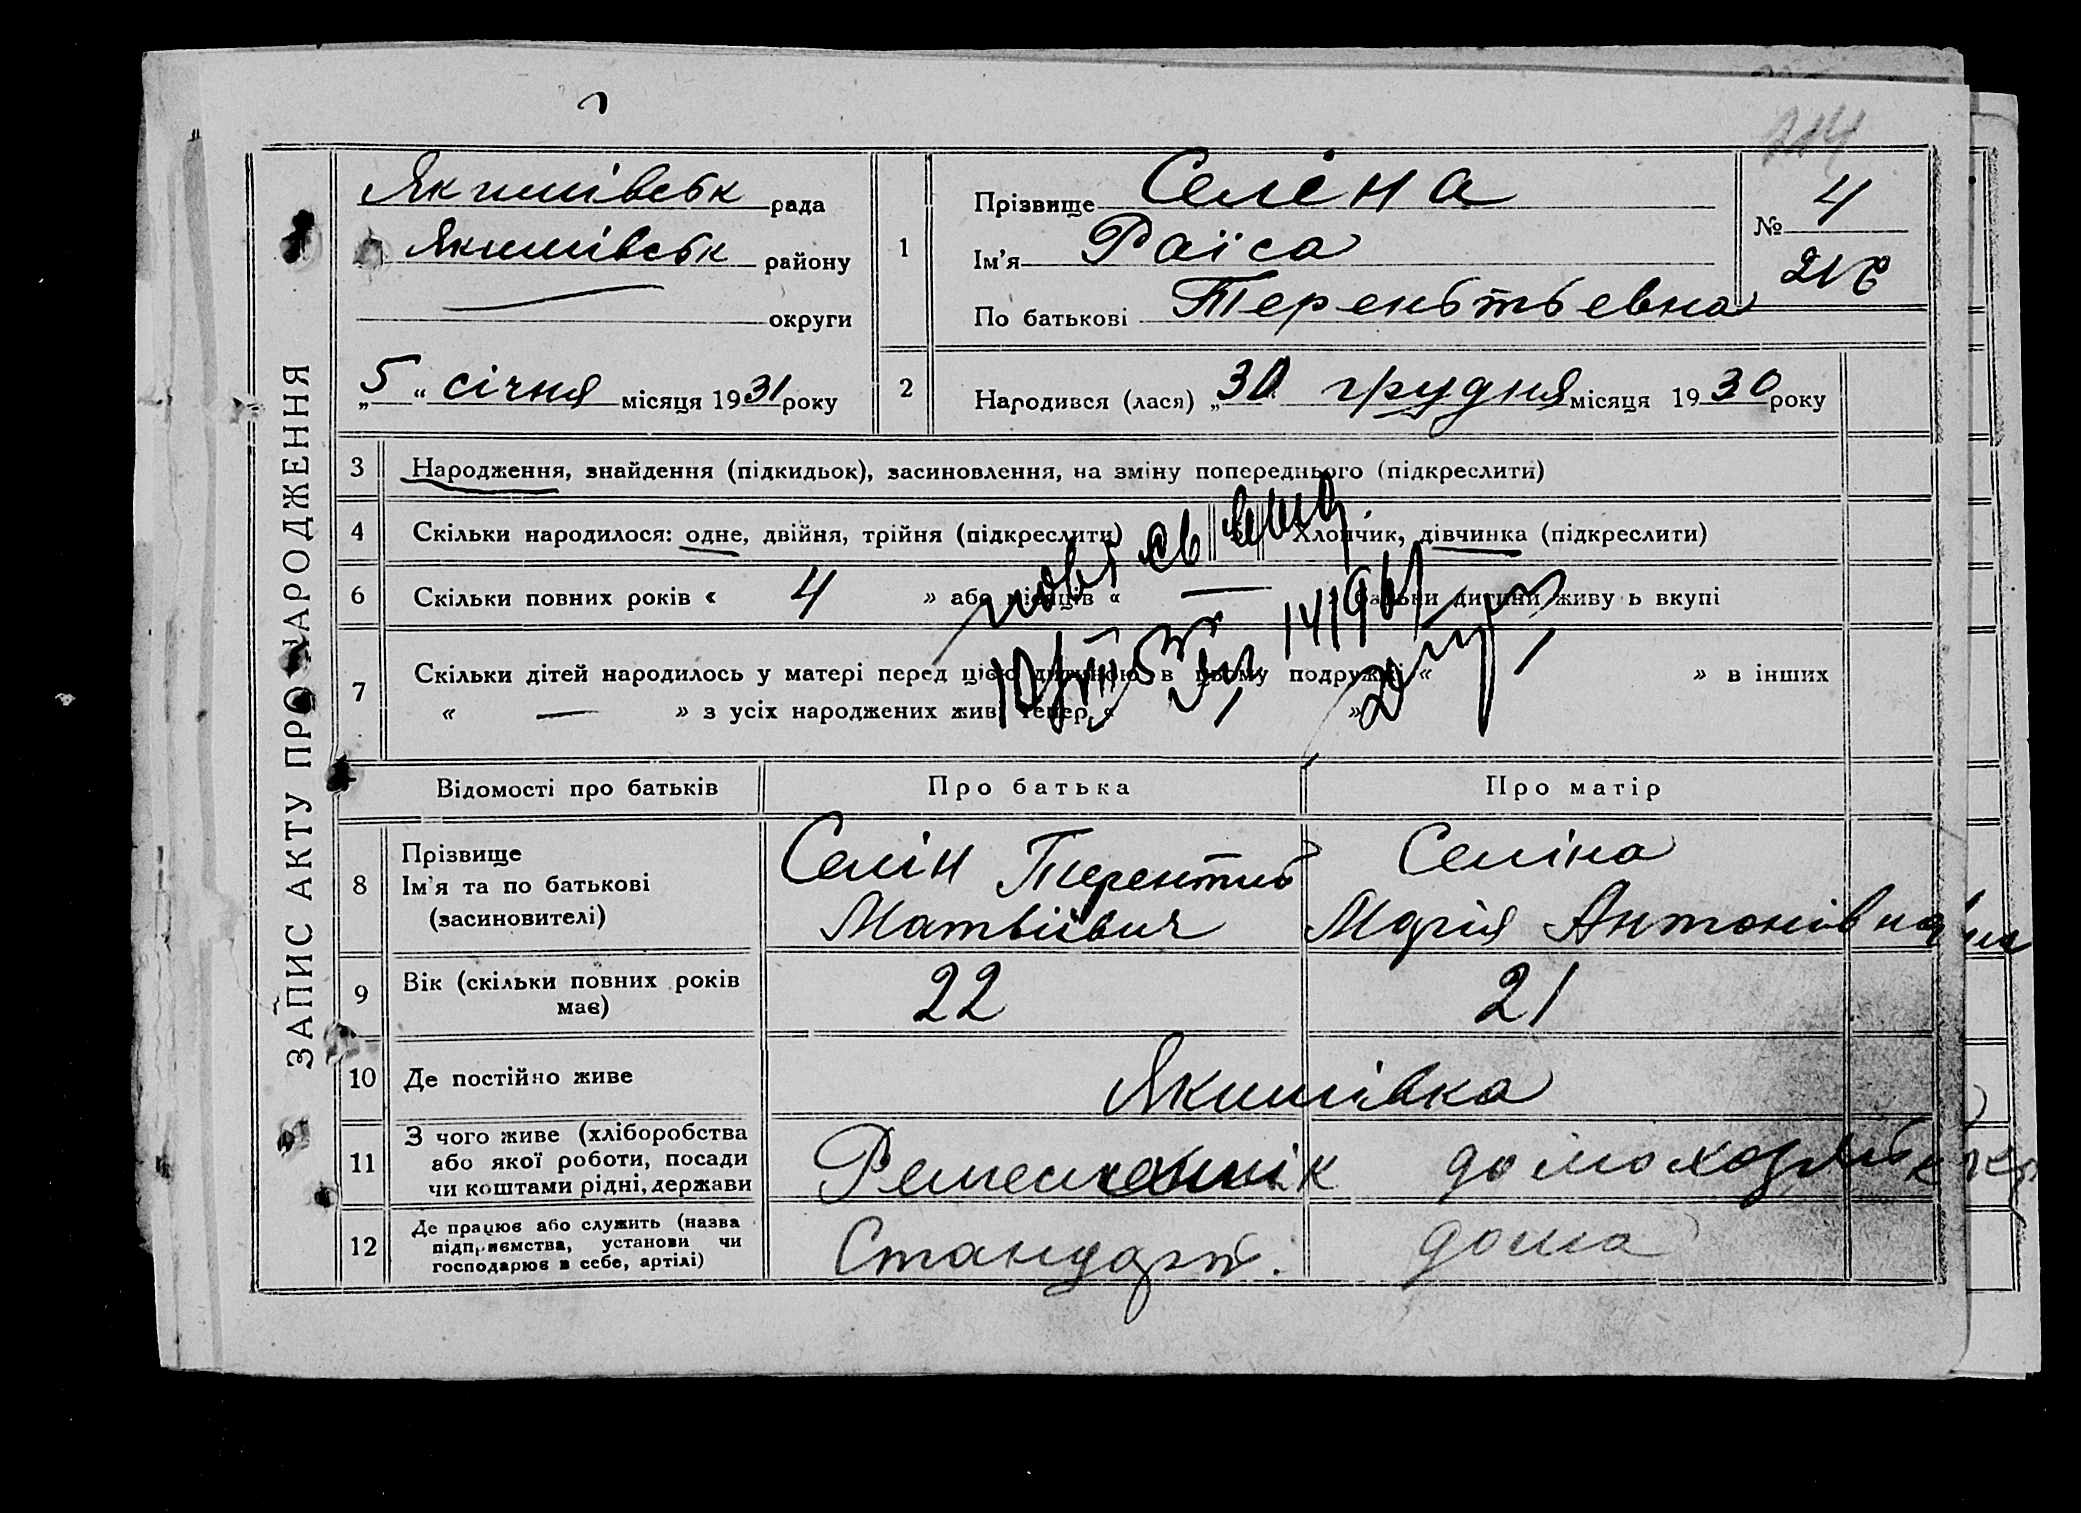 214
Якимівськ рада
Якимівськ району
округи
„5“ січня місяця 1931 року
1
Прізвище Селіна
Ім'я Раїса
По батькові Терентьевна
№ 4
2
Народився (лася) „30 грудня місяця 1930 року
ЗАПИС АКТУ ПРО НАРОДЖЕННЯ
3 Народження, знайдення (підкидьок), засиновлення, на зміну попереднього (підкреслити)
4 Скільки народилося: одне, двійня, трійня (підкреслити) Хлопчик, дівчинка (підкреслити)
6 Скільки повних років « 4 » або місяців « — » батьки дитини живу ь вкупі
7 Скільки дітей народилось у матері перед цією дитиною в цьому подружжі « » в інших
« — » з усіх народжених живі тепер « »
Відомості про батьків Про батька Про матір
8 Прізвище
Ім'я та по батькові
(засновителі)
Селін Терентий
Матвіївич
Селіна
Марія Антонівна
9 Вік (скільки повних років
має)
22 21
10 Де постійно живе Якимівка
11 З чого живе (хліборобства
або якої роботи, посади
чи коштами рідні, держави
Ременсннік
12 Де працює або служить (назва
підприємства, установи чи
господарює в себе, артілі)
Стандарт. дома